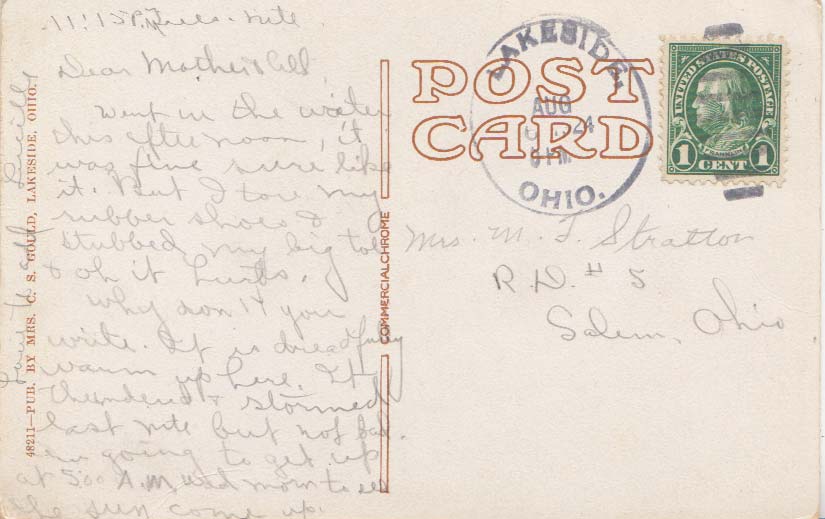 11:15 P.M. Tues. nite
Dear Mother & all,
Went in the water
this afternoon, it
was fine sure like
it. But I tore my
rubber shoes &
stubbed my big toe
& oh it hurts.
Why don't you
write. It is dreadfully
warm up here. It
thundered & stormed
last nite but not bad.
going to get up
at 5:00 A.M. wed morn to see
the sun come up.
Love to all
48211—PUB. BY MRS. C. S. GOULD, LAKESIDE, OHIO.
COMMERCIALCHROME
POST
CARD
LAKESIDE,
AUG
24
PM
OHIO.
UNITED STATES POSTAGE
FRANKLIN
1 CENT 1
Mrs. M. F. Stratton
R.D. # 5
Salem, Ohio